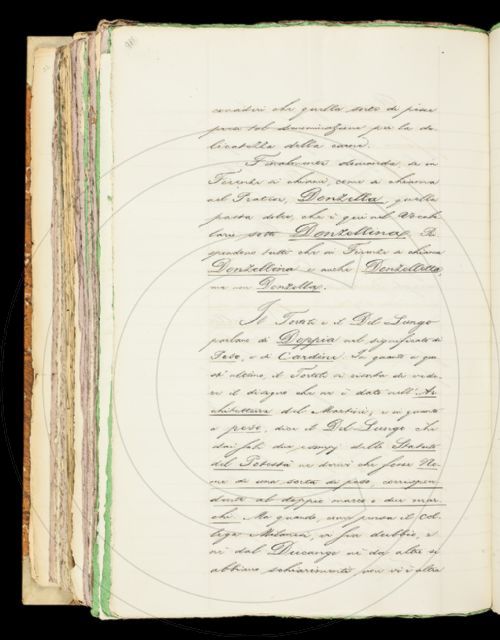 consideri che quella sorte di pesce
prese tal denominazione per la de-
licatezza della carne.
Finalmente domanda se in
Firenze si chiami, come si chiama
nel Pratese, Donzella, quella
pasta dolce, che è qui nel Vocabo-
lario sotto Donzellina. Ri-
spondono tutti che in Firenze si chiama
Donzellina e anche Donzelletta,
ma non Donzella.
Il Tortoli e il Del Lungo
parlano di Doppia nel significato di
Peso, e di Cardine. In quanto a que-
st'ultimo, il Tortoli si riserba di vede-
re il disegno che ne è dato nell'Ar-
chitettura del Martini; e in quanto
a peso, dice il Del Lungo che
dai soli due esempj dello Statuto
del Potestà ne deduce che fosse No-
me di una sorta di peso, corrispon-
dente al doppio marco o due mar-
chi. Ma quando, come pensa il Col-
lega Milanesi, ci sia dubbio, e
nè dal Ducange nè da altri si
abbiano schiarimenti, non vi è altro